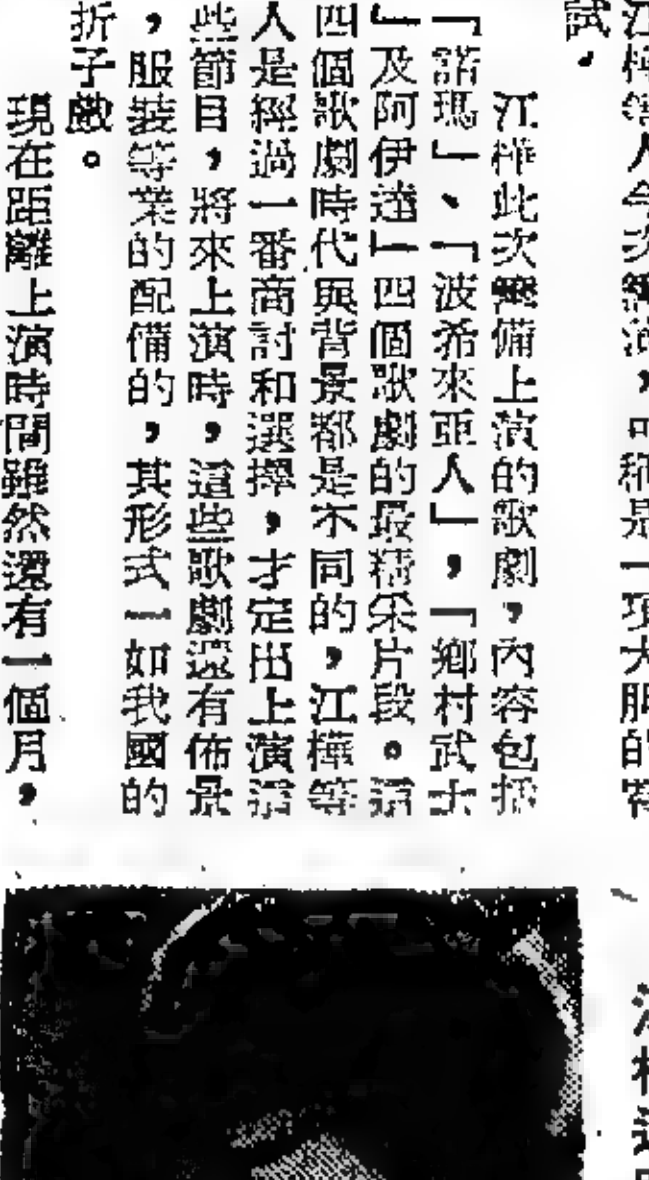 江樺等人今次編演,可稱是一項大胆的嘗
試,
江樺此次籌備上演的歌劇,內容包括
「諾瑪」、「波希來亞人」,「鄉村武士
」及阿伊達」四個歌劇的最精采片段。這
四個歌劇時代與背景都是不同的,江樺等
人是經過一番商討和選擇,才定出上演這
些節目,將來上演時,這些歌劇還有佈景
,服裝等業的配備的,其形式一如我國的
折子戲。
現在距離上演時間雖然還有一個月,